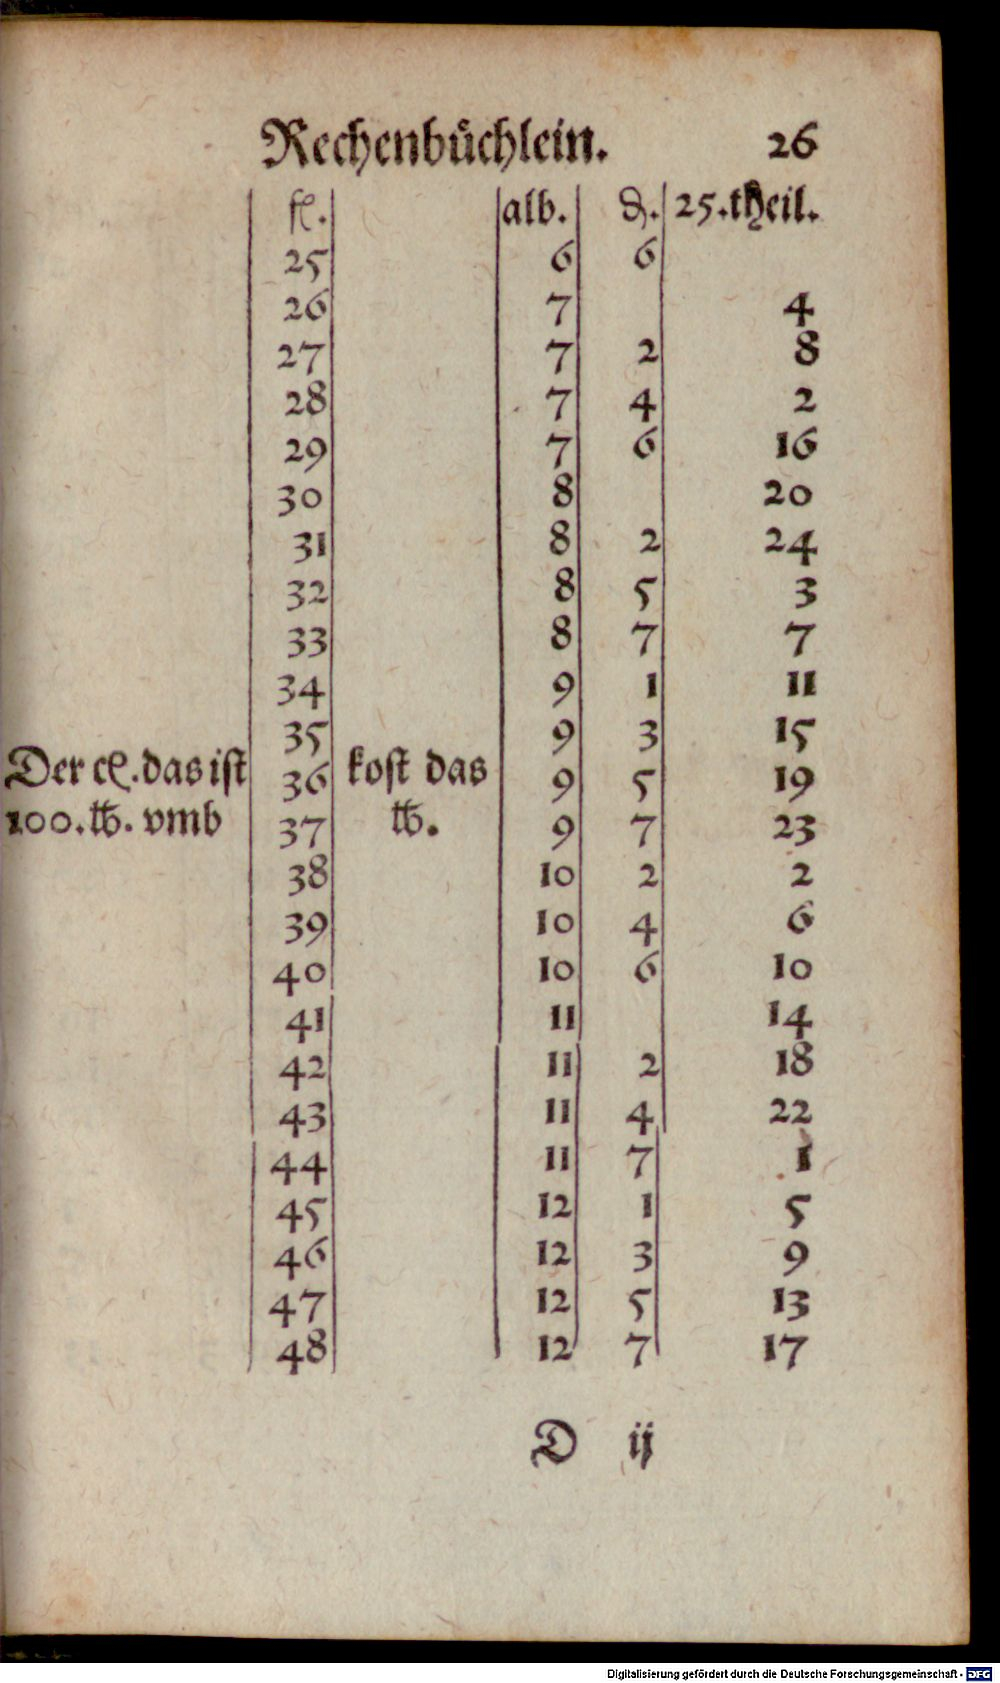 Rechenbüchlein. 26
fl. alb. ₰. 25.theil.
25 6 6
26 7 4
27 7 2 8
28 7 4 2
29 7 6 16
30 8 20
31 8 2 24
32 8 5 3
33 8 7 7
34 9 1 11
35 9 3 15
Der cł. das ist 36 kost das 9 5 19
100. ℔. vmb 37 ℔. 9 7 23
38 10 2 2
39 10 4 6
40 10 6 10
41 11 14
42 11 2 18
43 11 4 22
44 11 7 1
45 12 1 5
46 12 3 9
47 12 5 13
48 12 7 17
D ij
Digitalisierung gefördert durch die Deutsche Forschungsgemeinschaft - DFG